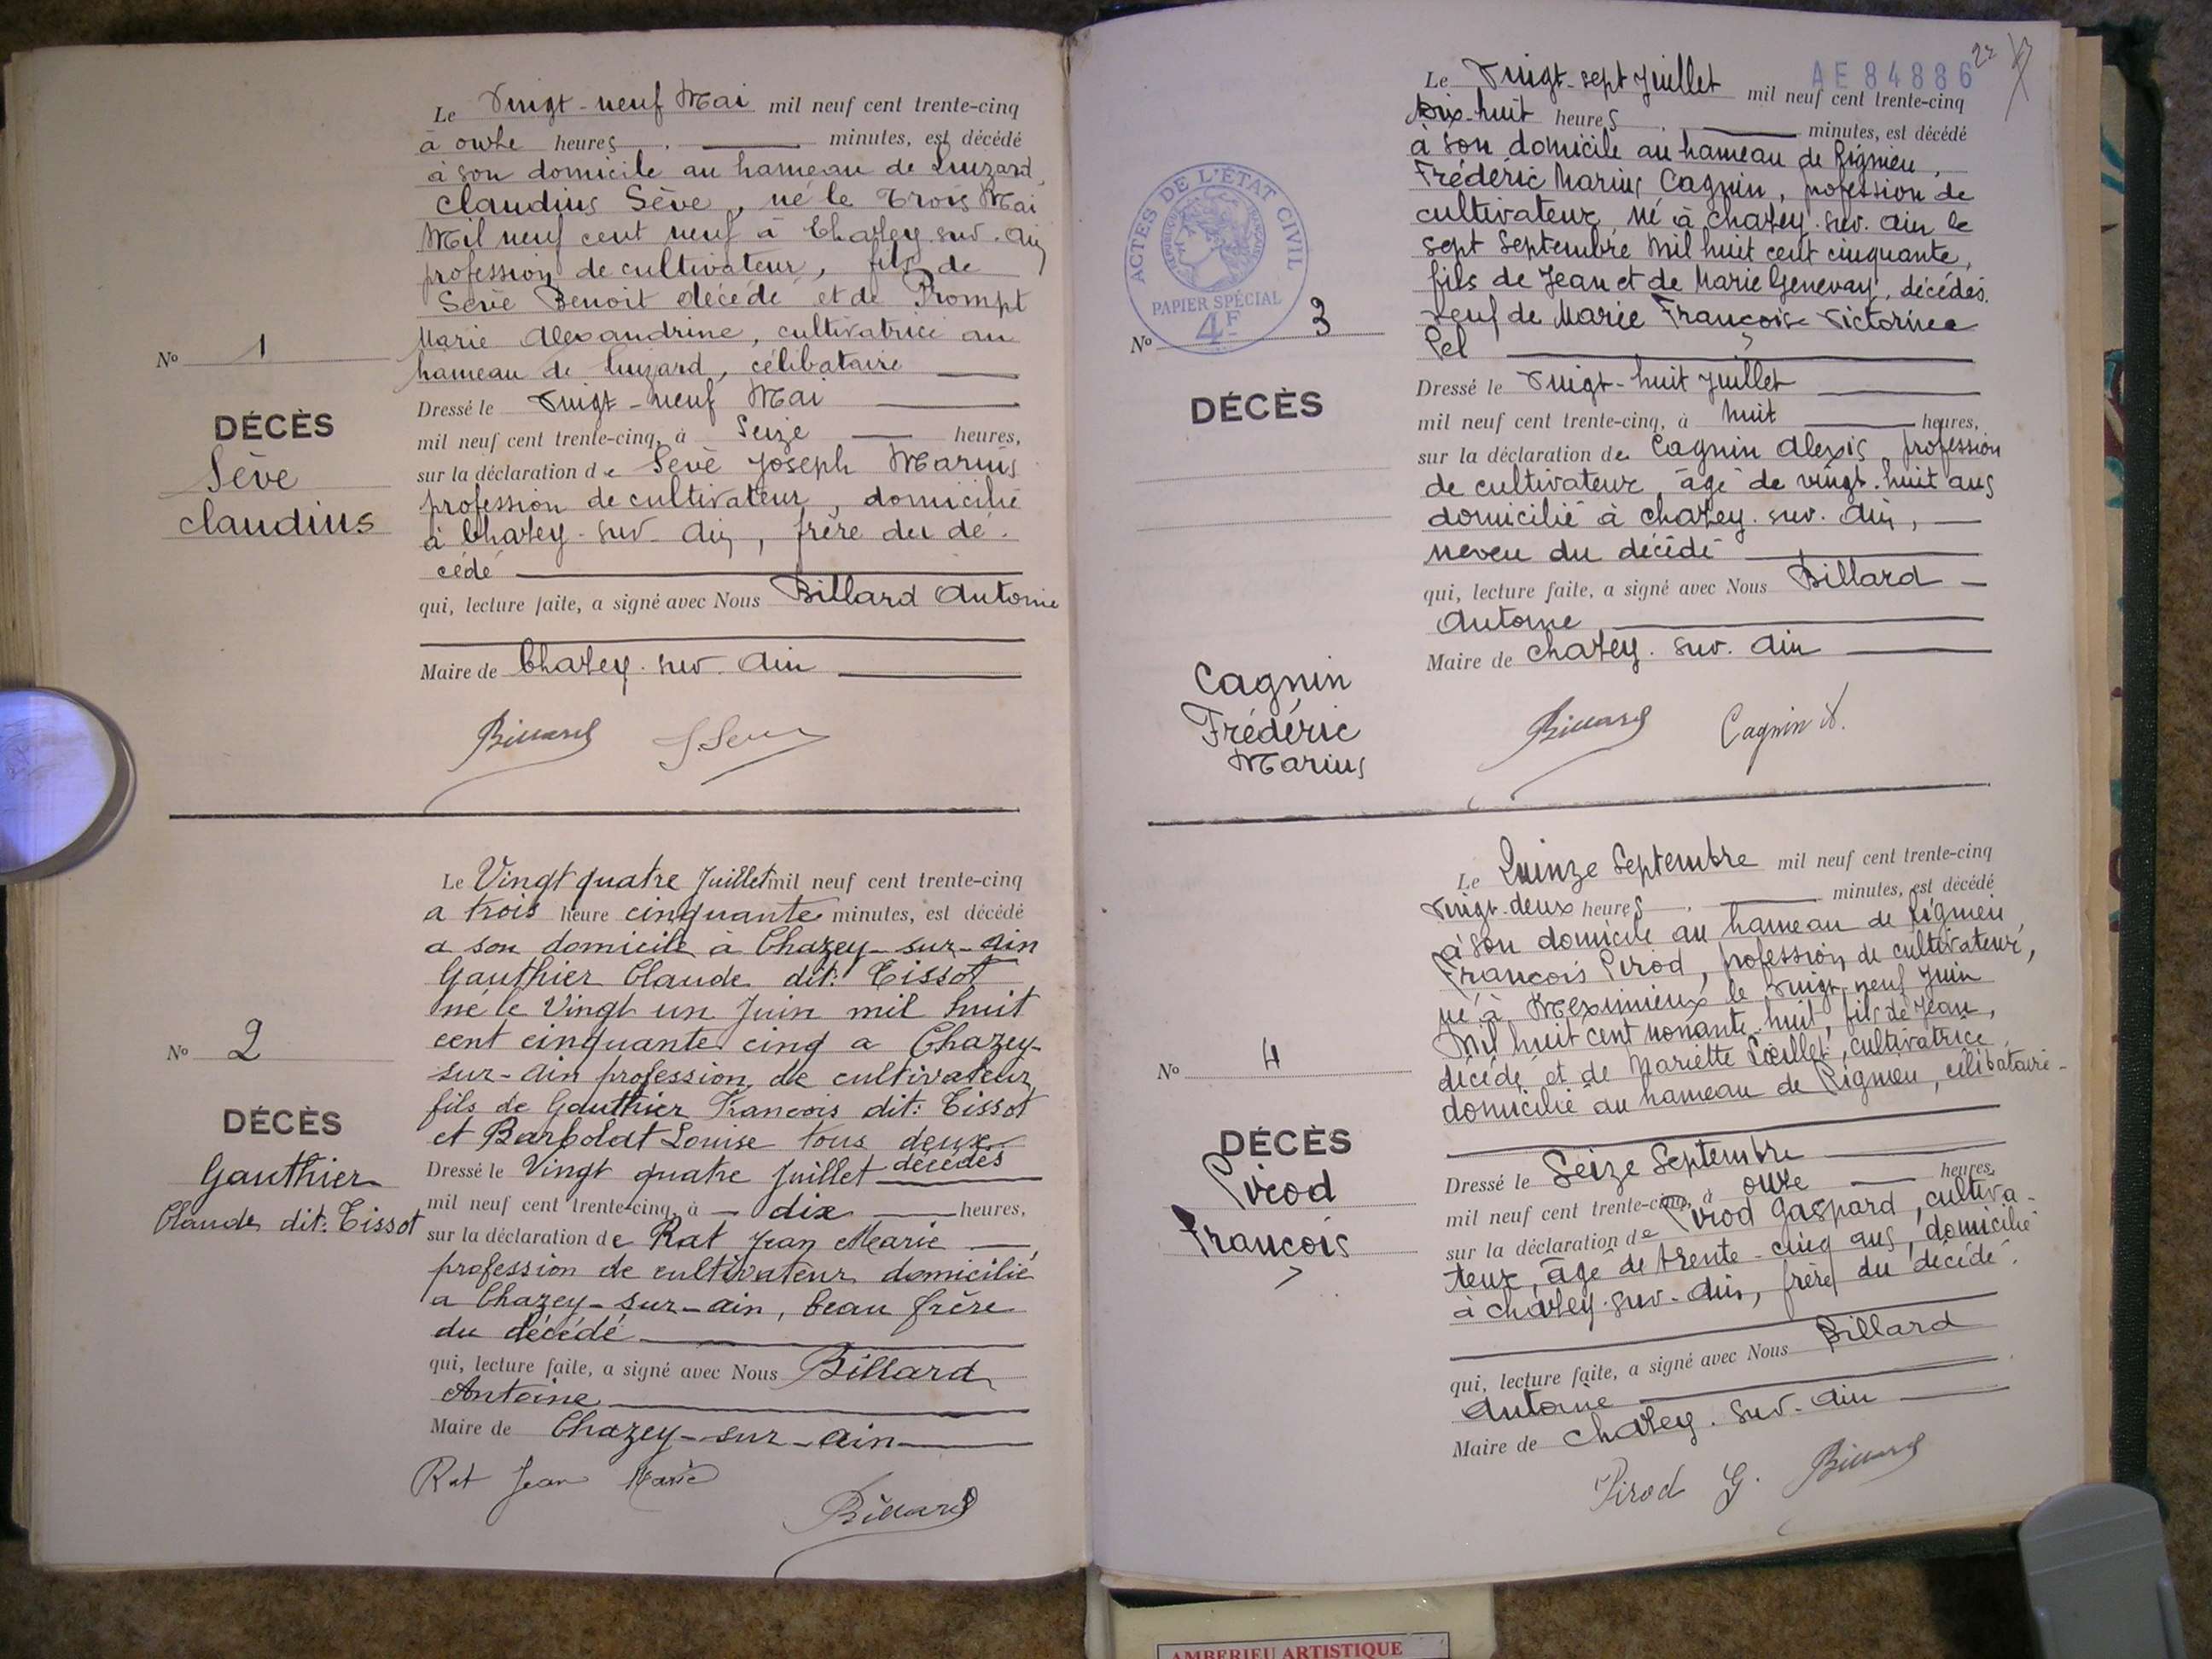 Le Vingt-neuf Mai mil neuf cent trente-cinq
à onze heures minutes, est décédé
à son domicile au hameau de Luizard,
Claudius Sève, né le Trois Mai
Mil neuf cent neuf à Chazey-sur-Ain
profession de cultivateur, fils de
Sève Benoit décédé et de Prompt
Marie Alexandrine, cultivatrice au
hameau de Luizard, célibataire
N° 1
DÉCÈS
Sève
Claudius
Dressé le Vingt-neuf Mai
mil neuf cent trente-cinq, à Seize heures,
sur la déclaration de Sève Joseph Marius
profession de cultivateur, domicilié
à Chazey-sur-Ain, frère du dé-
cédé
qui, lecture faite, a signé avec Nous Billard Antoine
Maire de Chazey-sur-Ain
Billard
Le Vingt quatre Juillet mil neuf cent trente-cinq
a trois heure cinquante minutes, est décédé
a son domicile à Chazey-sur-Ain
Gauthier Claude dit: Tissot
né le Vingt un Juin mil huit
cent cinquante cinq a Chazey-
sur-Ain profession de cultivateur,
fils de Gauthier Francois dit: Tissot
et Barbolat Louise tous deux
décédés
N° 2
DÉCÈS
Gauthier
Claude dit: Tissot
Dressé le Vingt quatre Juillet
mil neuf cent trente-cinq, à dix heures,
sur la déclaration de Rat Jean Marie
profession de cultivateur domicilié
a Chazey-sur-ain, beau frère
du décédé
qui, lecture faite, a signé avec Nous Billard
Antoine
Maire de Chazey-sur-Ain
Rat Jean Marie
Billard
22
AE 84886
Le Vingt-sept Juillet mil neuf cent trente-cinq
Dix-huit heures minutes, est décédé
à son domicile au hameau de Rignieu,
Frédéric Marius Cagnin, profession de
cultivateur, né à Chazey-sur-Ain le
sept Septembre Mil huit cent cinquante,
fils de Jean et de Marie Genevay, décédés.
veuf de Marie Françoise Victorine
Pel
ACTES DE L'ÉTAT CIVIL
PAPIER SPÉCIAL
4F
N° 3
DÉCÈS
Cagnin
Frédéric
Marius
Dressé le Vingt-huit Juillet
mil neuf cent trente-cinq, à huit heures,
sur la déclaration de Cagnin Alexis, profession
de cultivateur âgé de vingt-huit ans
domicilié à Chazey-sur-Ain,
neveu du décédé
qui, lecture faite, a signé avec Nous Billard
Antoine
Maire de Chazey-sur-Ain
Billard Cagnin A.
Le Quinze Septembre mil neuf cent trente-cinq
Vingt-deux heures minutes, est décédé
à son domicile au hameau de Rignieu
François Pirod, profession de cultivateur,
né à Meximieux le Vingt-neuf Juin
Mil huit cent nonante-huit, fils de Jean,
décédé et de Mariette Loeillet, cultivatrice
domicilié au hameau de Rignieu, célibataire
N° 4
DÉCÈS
Pirod
François
Dressé le Seize Septembre
mil neuf cent trente-cinq, à onze heures,
sur la déclaration de Pirod Gaspard, cultiva-
teur, âgé de trente-cinq ans, domicilié
à Chazey-sur-Ain, frère du décédé.
qui, lecture faite, a signé avec Nous Billard
Antoine
Maire de Chazey-sur-Ain
Pirod G. Billard
AMBERIEU ARTISTIQUE